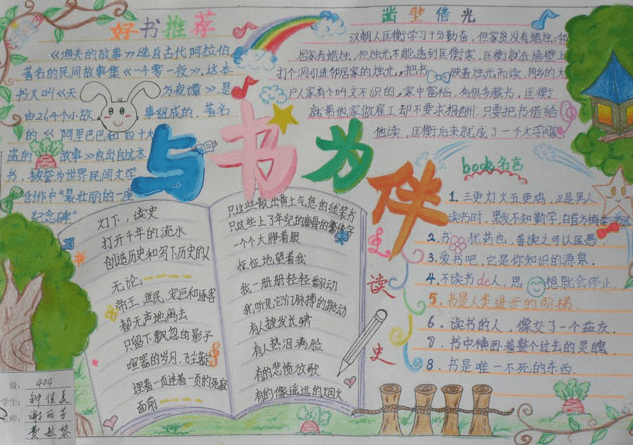 好书推荐
《渔夫的故事》选自古代阿拉伯
著名的民间故事集《一千零一夜》,这本
书又叫《天方夜谭》,是
由264个小故事组成的,著名
的《阿里巴巴和四十大
盗的故事》也出自这本
书,被誉为世界民间文学
创作中“最壮丽的一座
纪念碑”
凿壁借光
汉朝人匡衡学习十分勤奋,但家贫没有蜡烛,邻
居家有蜡烛,但烛光不能透到匡衡家,匡衡就在墙壁上
打个洞引进邻居家的烛光,把书映着烛光而读,同乡的大
户人家有个叫文不识的,家中富裕,有很多藏书,匡衡
就替他家做雇工却不要求报酬,只要把书借给
他读,匡衡后来就成了一个大学
与书为伴
灯下,读史
打开千年的流水
创造历史和写下历史的人
无论
帝王、庶民、宠臣和逐客
都无声地离去
只留下飘忽的影子
喧嚣的岁月,飞尘
踩着一页连着一页的
面前
只这些散出黄土气息的线装书
只这些上了年纪的
一个大睁着眼
怔怔地望着我
我一册册轻轻翻动
我听见它们脉搏的跳动
有人披发长啸
有人热泪满脸
有的悲愤放歌
有的像遥远的烟火
读史
book名言
1、三更灯火五更鸡,正是男人
读书时,黑发不知勤学
2、书犹药也,善读之可以医愚
3、爱书吧,它是你知识的源泉
4、不读书de人,思想就会停止。
5、书是人类进步的阶梯
6、读书的人,像交了一个益友。
7、书中横卧着整个过去的灵魂
8、书是唯一不死的东西
级:404
学生:钟佳